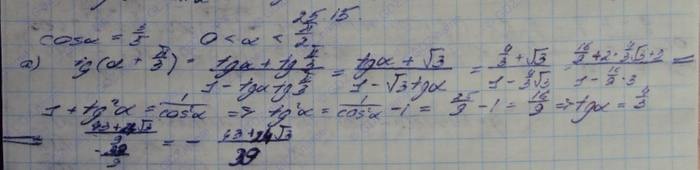 25.15.
cosα = 3/5    0 < α < π/2
а) tg(α + π/3) = (tgα + tg π/3)/(1 - tgα tg π/3) = (tgα + √3)/(1 - √3 tgα) = (4/3 + √3)/(1 - 4/3 √3) = (16/9 + 2 · 4/3 √3 + 3)/(1 - 16/9 · 3) =
1 + tg²α = 1/cos²α => tg²α = 1/cos²α - 1 = 25/9 - 1 = 16/9 => tgα = 4/3
= ((43 + 24√3)/9)/(-39/9) = - (43 + 24√3)/39